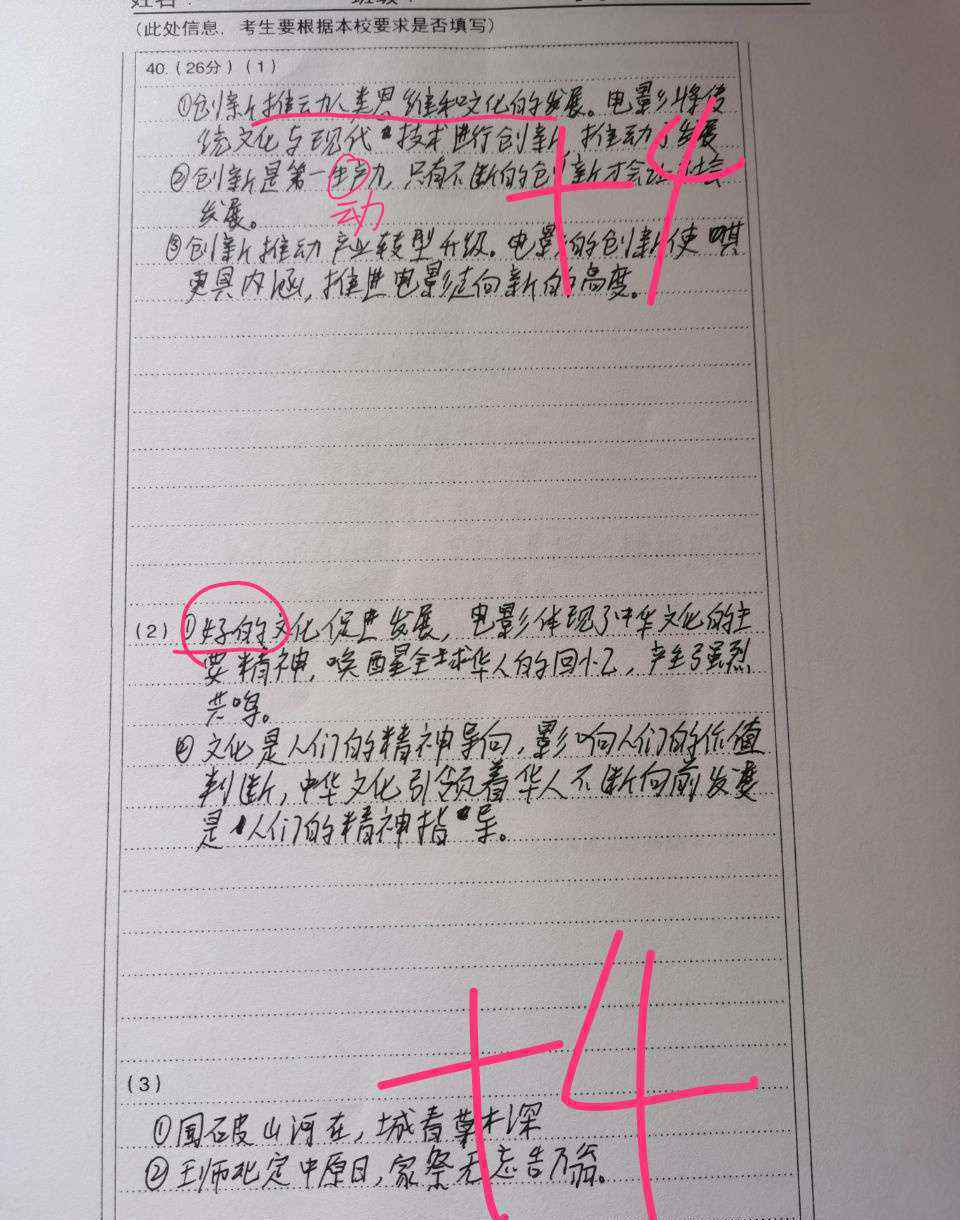 (此处信息，考生要根据本校要求是否填写)
40.(26分)(1)
①创新推动人类思维和文化的发展。电影将传
统文化与现代技术进行创新，推动了发展
②创新是第一生产力，只有不断的创新才会让社会
动
发展。
③创新推动产业转型升级。电影的创新使其
更具内涵，推进电影走向新的高度。
+4
(2)①好的文化促进发展，电影体现了中华文化的主
要精神，唤醒全球华人的回忆，产生强烈
共鸣。
②文化是人们的精神导向，影响人们的价值
判断，中华文化引领着华人不断向前发展
是人们的精神指导。
+4
(3)
①国破山河在，城春草木深
②王师北定中原日，家祭无忘告乃翁。